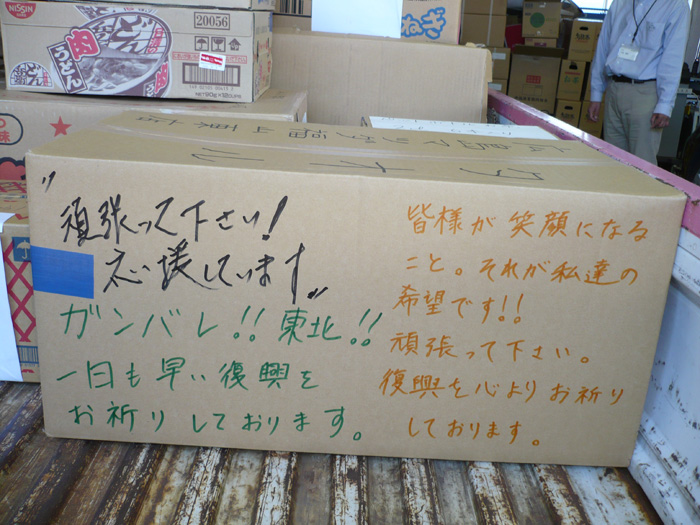 NISSIN
20056
肉うどん
ねぎ
タオル
"頑張って下さい!
応援しています"
ガンバレ!!東北!!
一日も早い復興を
お祈りしております。
皆様が笑顔になる
こと。それが私達の
希望です!!
頑張って下さい。
復興を心よりお祈り
しております。